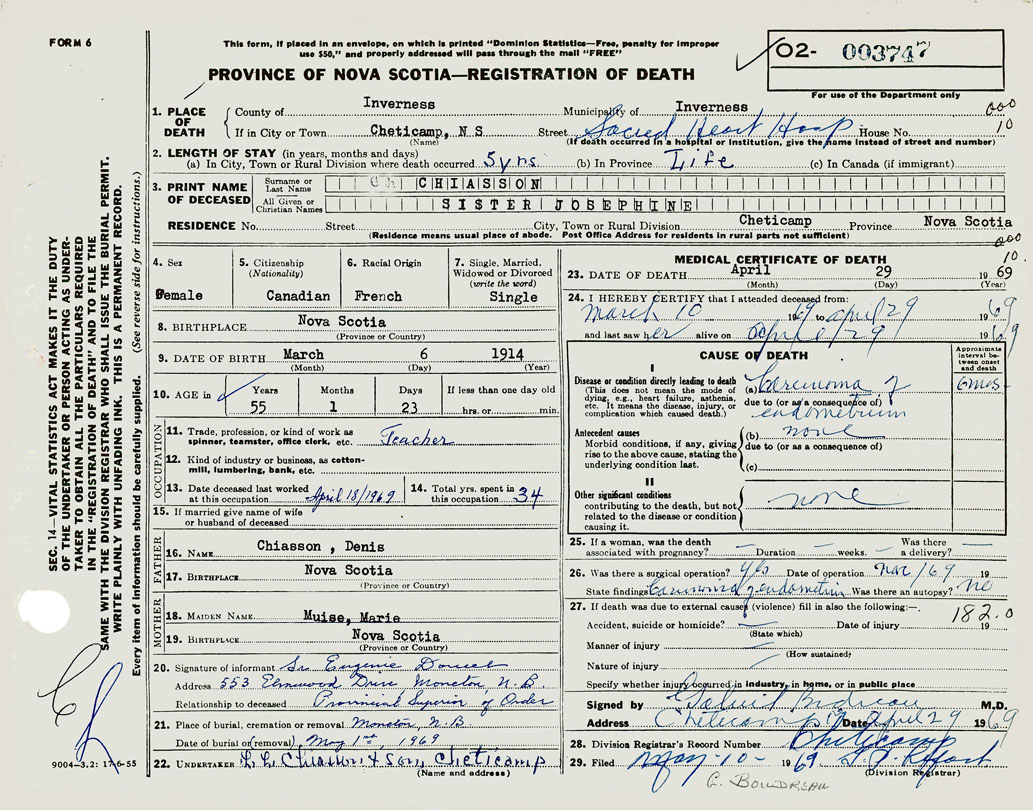 FORM 6
This form, if placed in an envelope, on which is printed "Dominion Statistics—Free, penalty for improper
use $50," and properly addressed will pass through the mail "FREE"
PROVINCE OF NOVA SCOTIA—REGISTRATION OF DEATH
02- 003747
For use of the Department only
1. PLACE OF DEATH
County of Inverness Municipality of Inverness
000
10
If in City or Town Cheticamp, N S Street Sacred Heart Hosp House No.
(Name) (If death occurred in a hospital or institution, give the name instead of street and number)
2. LENGTH OF STAY (in years, months and days)
(a) In City, Town or Rural Division where death occurred 5 yrs (b) In Province Life (c) In Canada (if immigrant)
3. PRINT NAME OF DECEASED
Surname or Last Name CHIASSON
All Given or Christian Names SISTER JOSEPHINE
RESIDENCE No. Street City, Town or Rural Division Cheticamp Province Nova Scotia
(Residence means usual place of abode. Post Office Address for residents in rural parts not sufficient)
000
10.
4. Sex
Female
5. Citizenship
(Nationality)
Canadian
6. Racial Origin
French
7. Single, Married,
Widowed or Divorced
(write the word)
Single
8. BIRTHPLACE Nova Scotia
(Province or Country)
9. DATE OF BIRTH March 6 1914
(Month) (Day) (Year)
10. AGE in
Years Months Days If less than one day old
55 1 23 hrs. or min.
OCCUPATION
11. Trade, profession, or kind of work as
spinner, teamster, office clerk, etc. Teacher
12. Kind of industry or business, as cotton-
mill, lumbering, bank, etc.
13. Date deceased last worked
at this occupation April 18/1969
14. Total yrs. spent in
this occupation 34
15. If married give name of wife
or husband of deceased
FATHER
16. NAME Chiasson , Denis
17. BIRTHPLACE Nova Scotia
(Province or Country)
MOTHER
18. MAIDEN NAME Muise, Marie
19. BIRTHPLACE Nova Scotia
(Province or Country)
20. Signature of informant Sr. Eugenie Doucet
Address 553 Elmwood Drive Moncton, N.B
Relationship to deceased Provincial Superior of Order
21. Place of burial, cremation or removal Moncton, N.B
Date of burial (removal) May 1st 1969
22. UNDERTAKER Chiasson & Son, Cheticamp
(Name and address)
MEDICAL CERTIFICATE OF DEATH
23. DATE OF DEATH April 29 1969
(Month) (Day) (Year)
24. I HEREBY CERTIFY that I attended deceased from:
March 10 1969 to april 29 1969
and last saw her alive on april 29 1969
CAUSE OF DEATH
Approximate
interval be-
tween onset
and death
I
Disease or condition directly leading to death
(This does not mean the mode of
dying, e.g., heart failure, asthenia,
etc. It means the disease, injury, or
complication which caused death.)
(a) Carcinoma of 6 mos.
due to (or as a consequence of)
endometrium
Antecedent causes
Morbid conditions, if any, giving
rise to the above cause, stating the
underlying condition last.
(b) none
due to (or as a consequence of)
(c)
II
Other significant conditions
contributing to the death, but not
related to the disease or condition
causing it.
none
25. If a woman, was the death Was there
associated with pregnancy? — Duration — weeks. — a delivery? —
26. Was there a surgical operation? yes Date of operation Mar/69 19
State findings Carcinoma of endometrium Was there an autopsy? no
27. If death was due to external causes (violence) fill in also the following:—
182.0
Accident, suicide or homicide? — Date of injury 19
(State which)
Manner of injury
(How sustained)
Nature of injury
Specify whether injury occurred in industry, in home, or in public place
Signed by M.D.
Address Cheticamp Date April 29 1969
28. Division Registrar's Record Number Cheticamp
29. Filed May-10- 1969
(Division Registrar)
G. BOUDREAU
SEC. 14—VITAL STATISTICS ACT MAKES IT THE DUTY
OF THE UNDERTAKER OR PERSON ACTING AS UNDER-
TAKER TO OBTAIN ALL THE PARTICULARS REQUIRED
IN THE "REGISTRATION OF DEATH" AND TO FILE THE
SAME WITH THE DIVISION REGISTRAR WHO SHALL ISSUE THE BURIAL PERMIT.
WRITE PLAINLY WITH UNFADING INK. THIS IS A PERMANENT RECORD.
Every item of information should be carefully supplied. (See reverse side for instructions.)
9004—3.2: 17-6-55